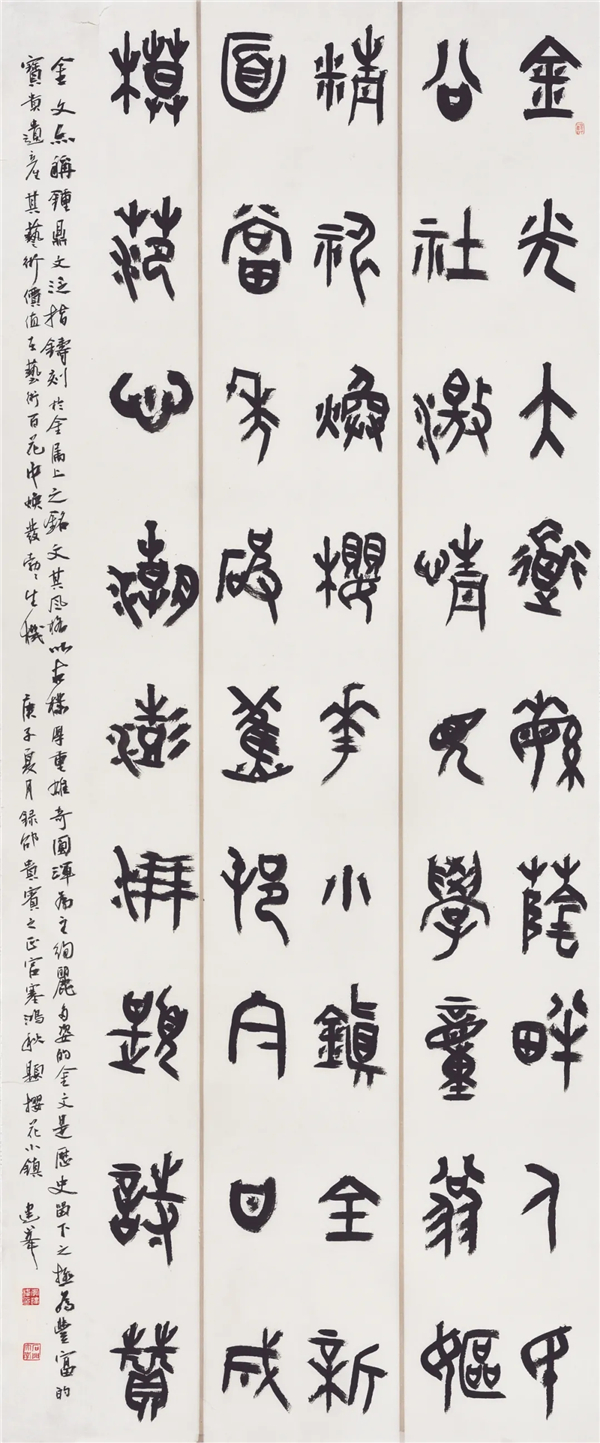 金光大道緐蔭畔人民
公社激情見學童翁嫗
精神煥櫻花小鎮全新
圖當年破舊邨今日成
模范心潮澎湃題詩贊
金文亦稱鍾鼎文泛指鑄刻於金屬上之銘文其風格以古樸厚重雄奇圓渾為主絢麗多姿的金文是歷史留下之極為豐富的
寶貴遺產其藝術價值在藝術百花中煥發勃勃生機 庚子夏月錄邵貴賓之正宮塞鴻秋題櫻花小鎮 建峯